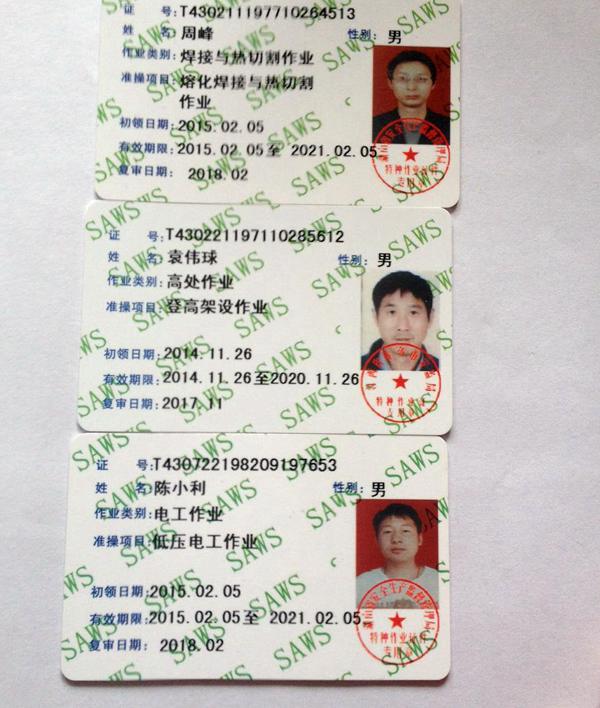 证 号:T430211197710264513
姓 名:周峰 性别: 男
作业类别:焊接与热切割作业
准操项目:熔化焊接与热切割
作业
初领日期:2015.02.05
有效期限:2015.02.05至 2021.02.05
复审日期: 2018.02
特种作业
专用章
证 号:T430221197110285612
姓 名:袁伟球 性别: 男
作业类别:高处作业
准操项目:登高架设作业
初领日期:2014.11.26
有效期限:2014.11.26至2020.11.26
复审日期:2017.11
特种作业
专用章
证 号:T430722198209197653
姓 名:陈小利 性别: 男
作业类别:电工作业
准操项目:低压电工作业
初领日期:2015.02.05
有效期限:2015.02.05至 2021.02.05
复审日期: 2018.02
特种作业
专用章
SAWS